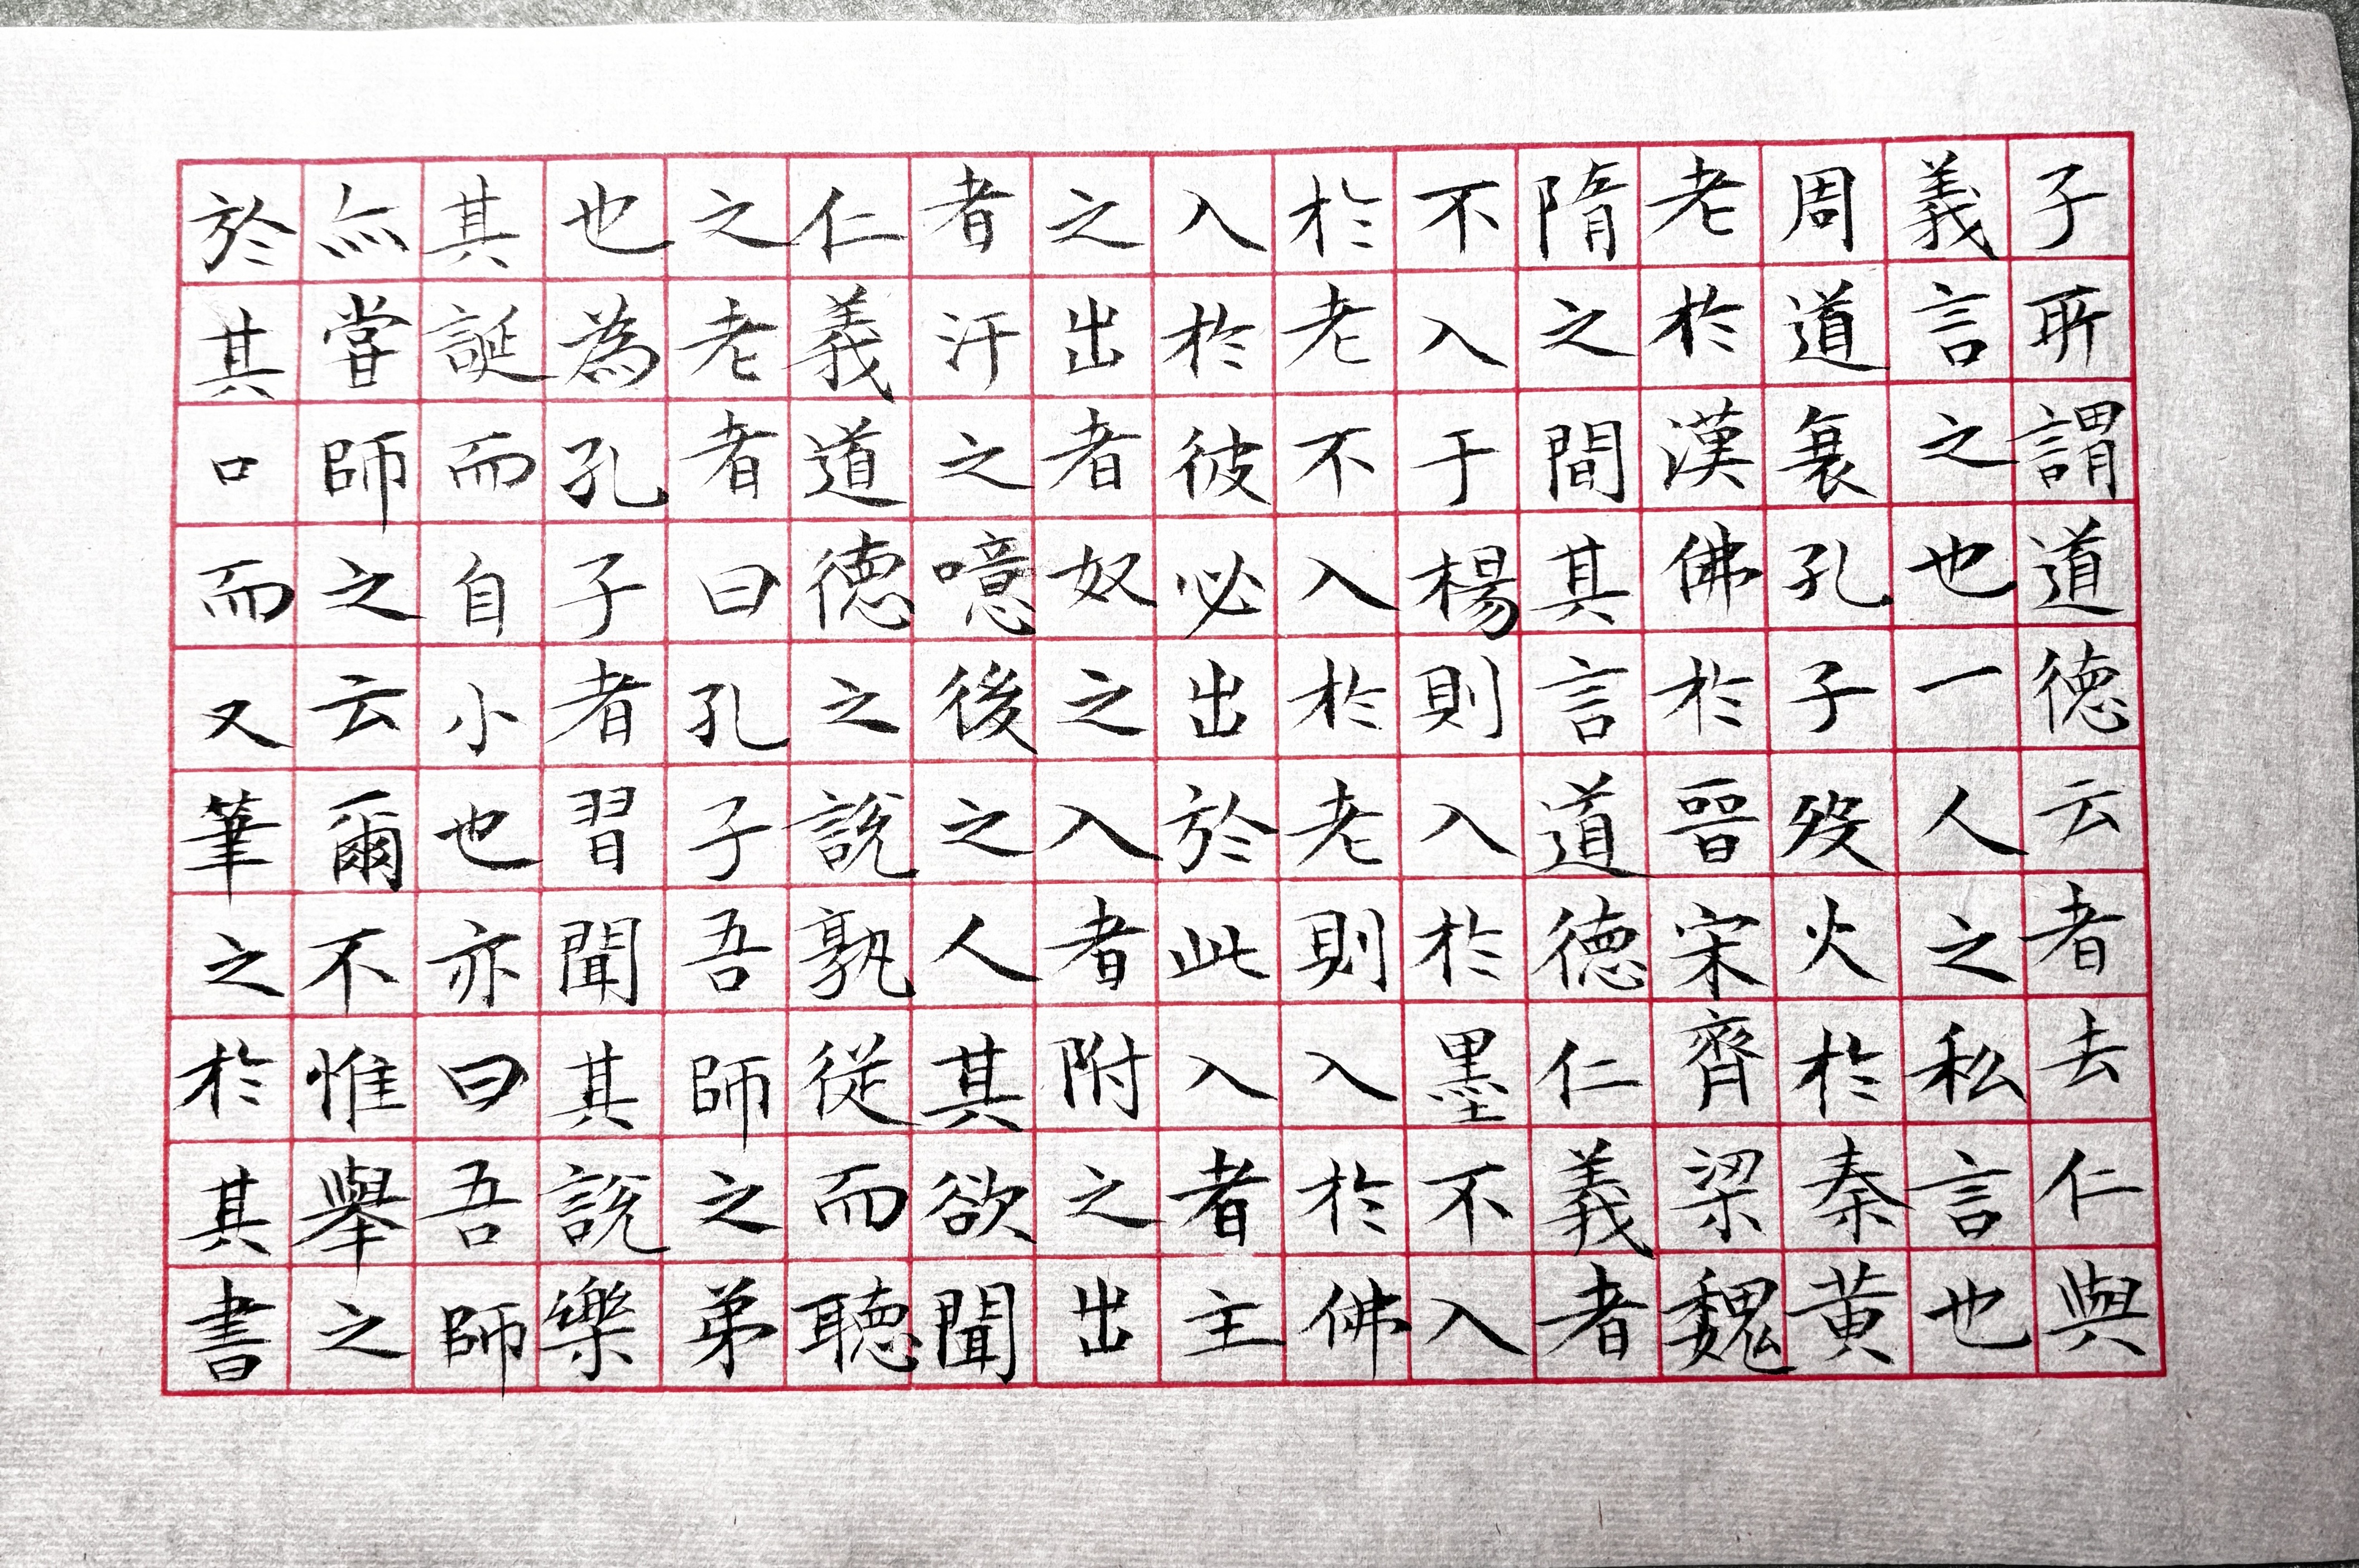 子所謂道德云者去仁與
義言之也一人之私言也
周道衰孔子歿火於秦黄
老於漢佛於晉宋齊梁魏
隋之間其言道德仁義者
不入于楊則入於墨不入
於老不入於老則入於佛
入於彼必出於此入者主
之出者奴之入者附之出
者汙之噫後之人其欲聞
仁義道德之說孰從而聽
之老者曰孔子吾師之弟
也為孔子者習聞其說樂
其誕而自小也亦曰吾師
亦嘗師之云爾不惟舉之
於其口而又筆之於其書